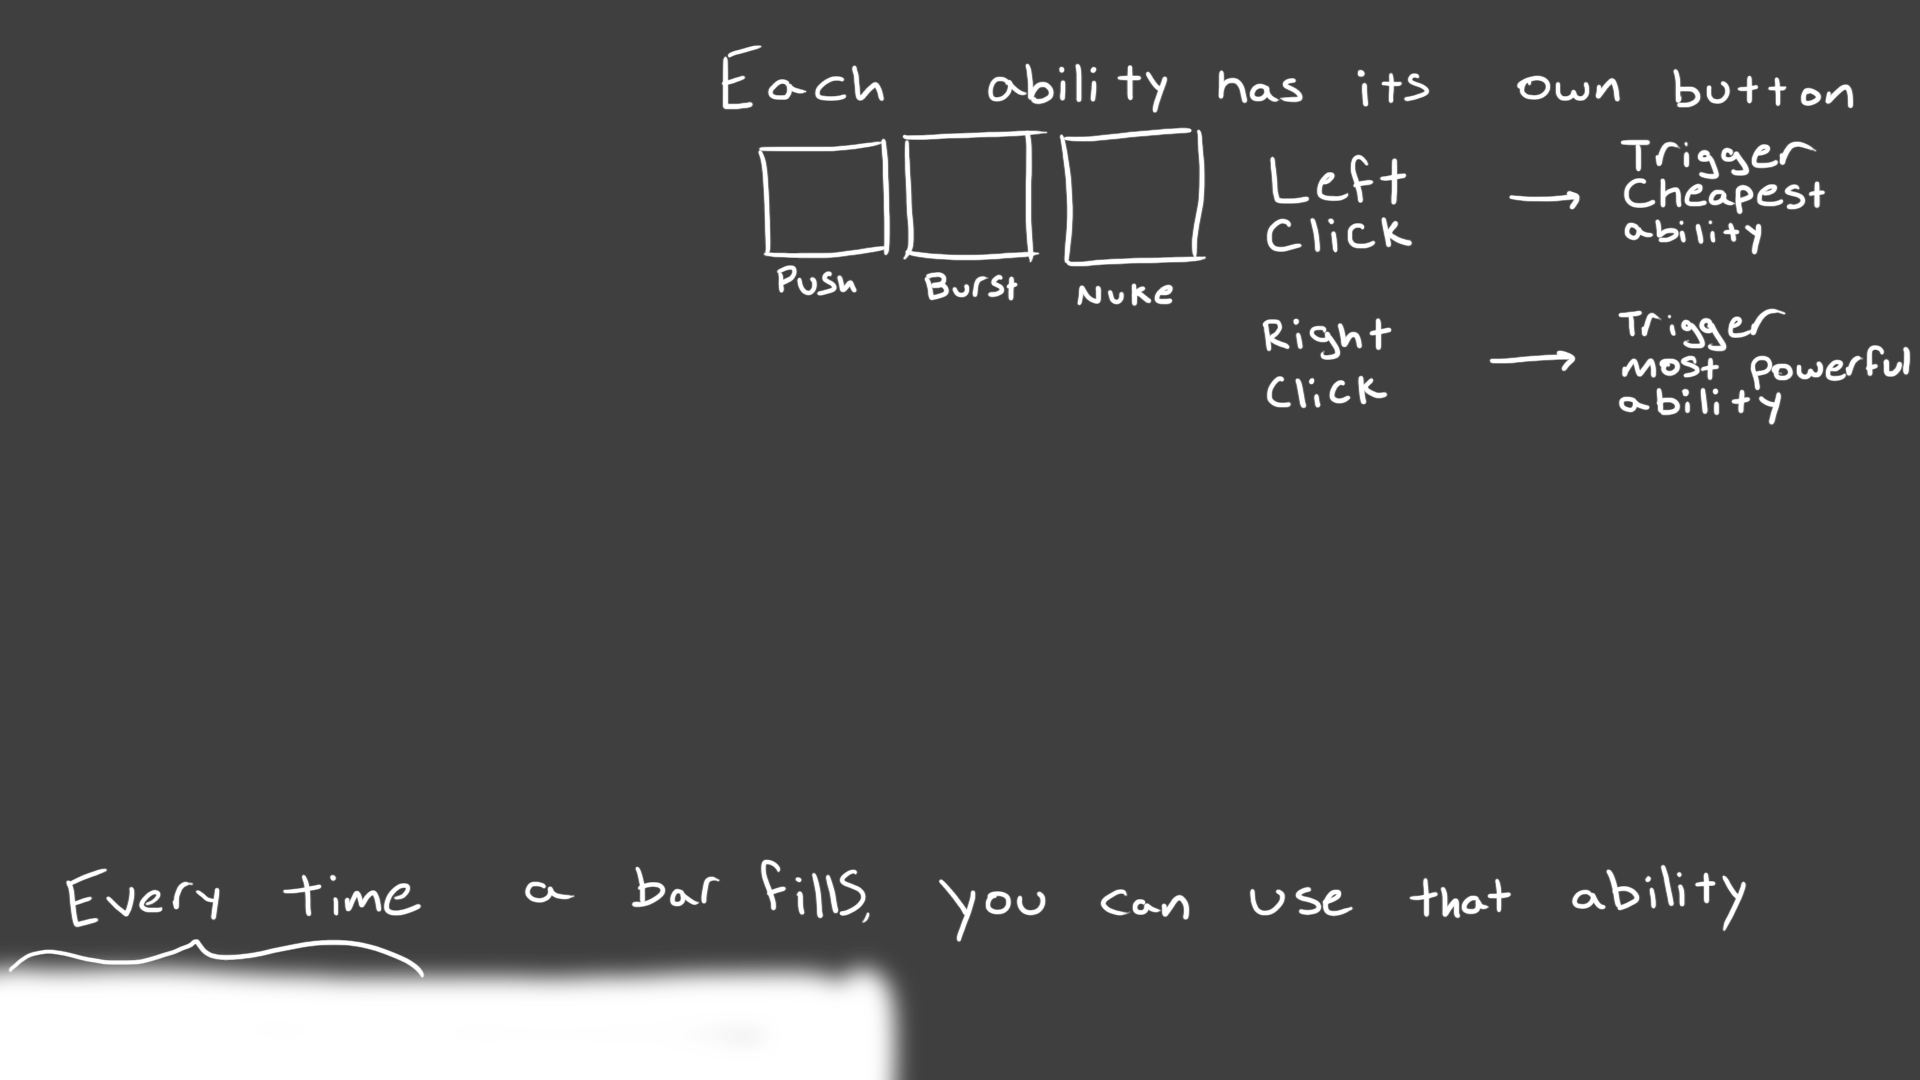 Each ability has its own button
Push Burst Nuke
Left
Click
→
Trigger
Cheapest
ability
Right
Click
→
Trigger
most powerful
ability
Every time a bar fills, you can use that ability